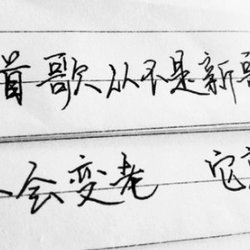 首歌从不是新歌
会变老 它